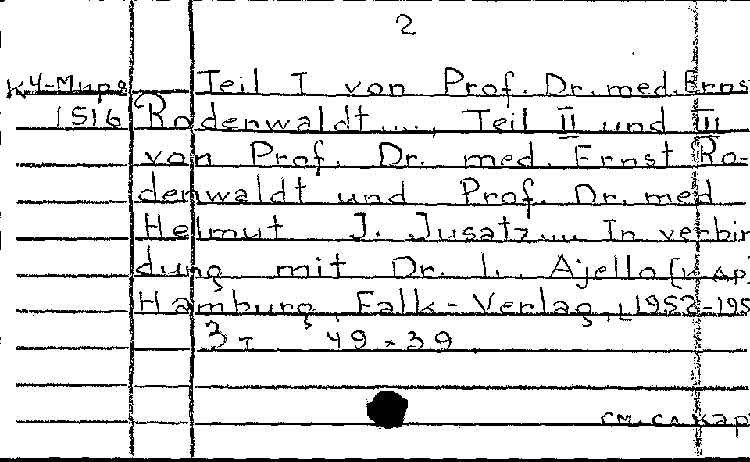 2
К4-Мира Teil I von Prof. Dr. med. Erns
1516 Rodenwaldt...., Teil II und III
von Prof. Dr. med. Ernst Ro-
denwaldt und Prof. Dr. med
Helmut J. Jusatz.... In verbin
dung mit Dr. L. Ajello [Кар]
Hamburg, Falk-Verlag, [1952-195
3т 49×39
см. сл. кар